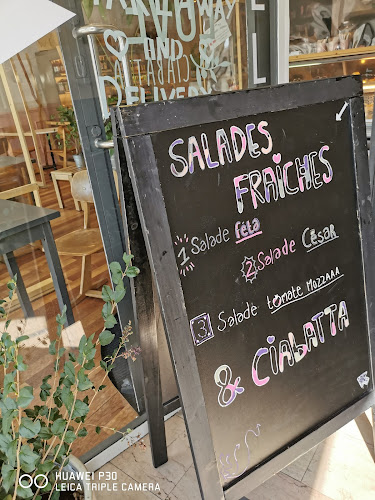 AND
CIABATTA
DELIVERY
SALADES
FRAÎCHES
1 Salade féta
2 Salade César
3 Salade tomate Mozzaaa
& CIABATTA
HUAWEI P30
LEICA TRIPLE CAMERA